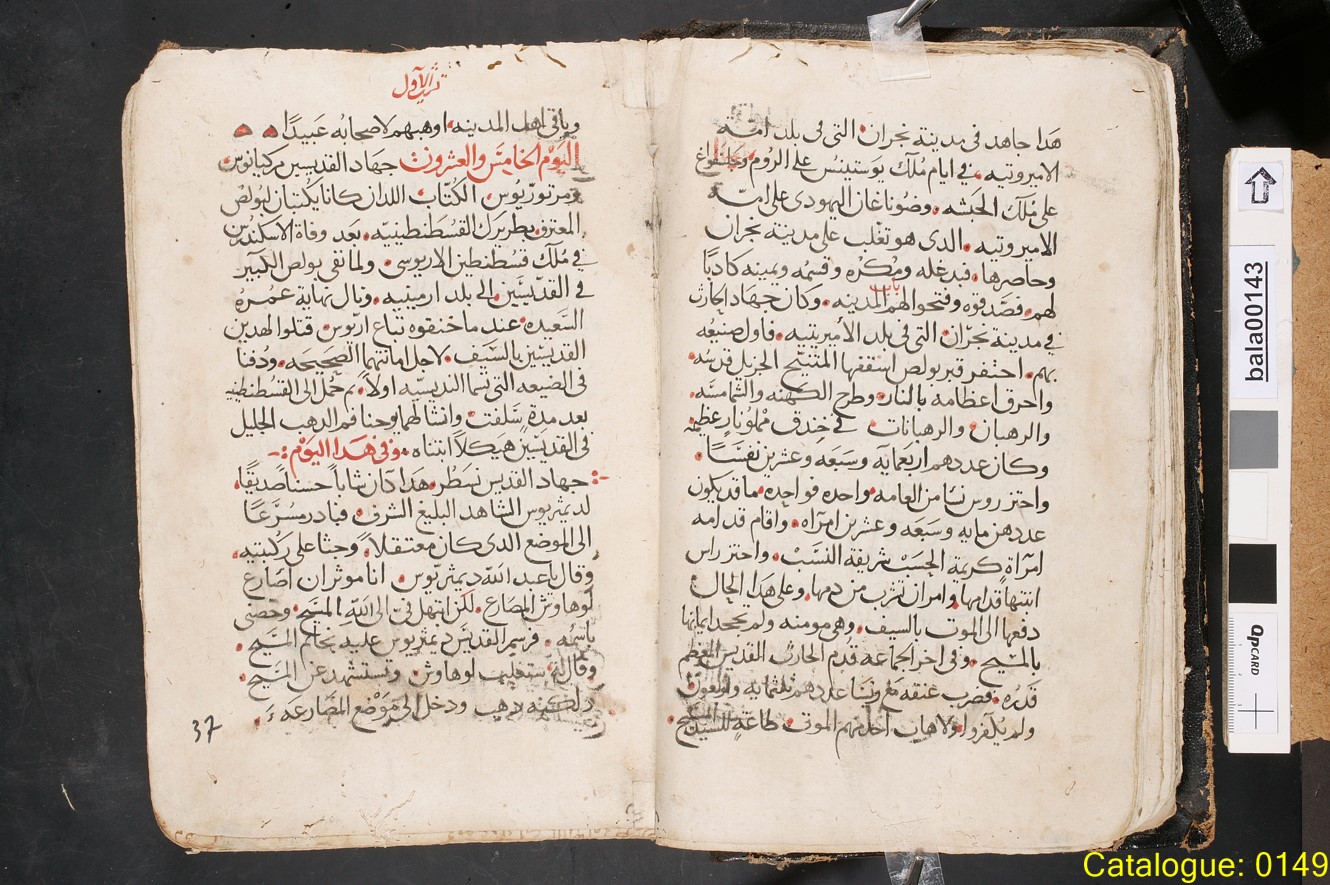 هدا جاهد في مدينة نجران التي في بلد امة
الاميروتيه في ايام مُلك يوستينس على الروم
على مُلك الحبشه وضوناغان اليهودي على امة
الاميروتيه الدي هو تغلب على مدينة نجران
وحاصرها فبدغله ومكره وقسمه ويمينه كادبًا
لهم فصدقوه وفتحوا لهم باب المدينه وكان جهاد الحارث
في مدينة نجران التي في بلد الاميريتيه فاول صنيعه
بهم احتفر قبر بولص اسقفها المتنيح الجزيل قدسه
واحرق اعظامه بالنار وطرح الكهنه والشمامسه
والرهبان والرهبانات في خندق مملو نار عظيمه
وكان عددهم اربعمايه وسبعه وعشرين نفسًا
واحتز روس نسا من العامه واحده فواحده مما قد يكون
عددهن مايه وسبعه وعشرين امرآه واقام قدامه
امرآة كريمة الحسب شريفة النسب واحتز راس
ابنتها قدامها وامر ان تشرب من دمها وعلى هدا الحال
دفعها الى الموت بالسيف وهي مومنه ولم تجحد ايمانها
بالمسيح وفي اخر الجماعه قدم الحارث القديس العظم
قدره فضرب عنقه مع ونسا عددهم تلتمايه واربعون
ولم يكفروا ولا هاب احد منهم الموت طاعةٍ للسيد المسيح
تشرين الآول
وباقي اهل المدينه اوهبهم لاصحابه عَبيدًا
اليوم الخامس والعشرون جهاد القديسين مركيانوس
ومرتوريوس الكتّاب اللدان كانا يكتبان لبولص
المعترف بطريرك القسطنطينيه بعد وفاة الاسكندرس
في مُلك قسطنطين الاريوسي ولما نفي بولص الكبير
في القديسين الى بلد ارمينيه ونال نهاية عمره
السعيده عند ما خنقوه تباع اريوس قتلوا لهدين
القديسين بالسيف لاجل امانتهما الصحيحه ودفنا
في الضيعه التي تسما اولًا ثم حمل الى القسطنطينيه
بعد مدة سلفت وانشا لهما يوحنا فم الدهب الجليل
في القديسين هيكلًا ابتناه وفي هدا اليوم
جهاد القديس نسطر هدا كان شابًا حسنًا صديقًا
لديمتريوس الشاهد البليغ الشرف فبادر مسرعًا
الى الموضع الدي كان معتقلًا وجثا على ركبتيه
وقال يا عبد الله ديمتريوس انا موثر ان اصارع
لوهاوش المصارع لكن ابتهل في الى الله المسيح وحصني
باسمه فرسم القديس ديمتريوس عليه بخاتم المسيح
وقال له ستغليب لوهاوش وتستشهد عن المسيح
ودخل الى موضع المصارعه
37
bala00143
QPCARD
Catalogue: 0149